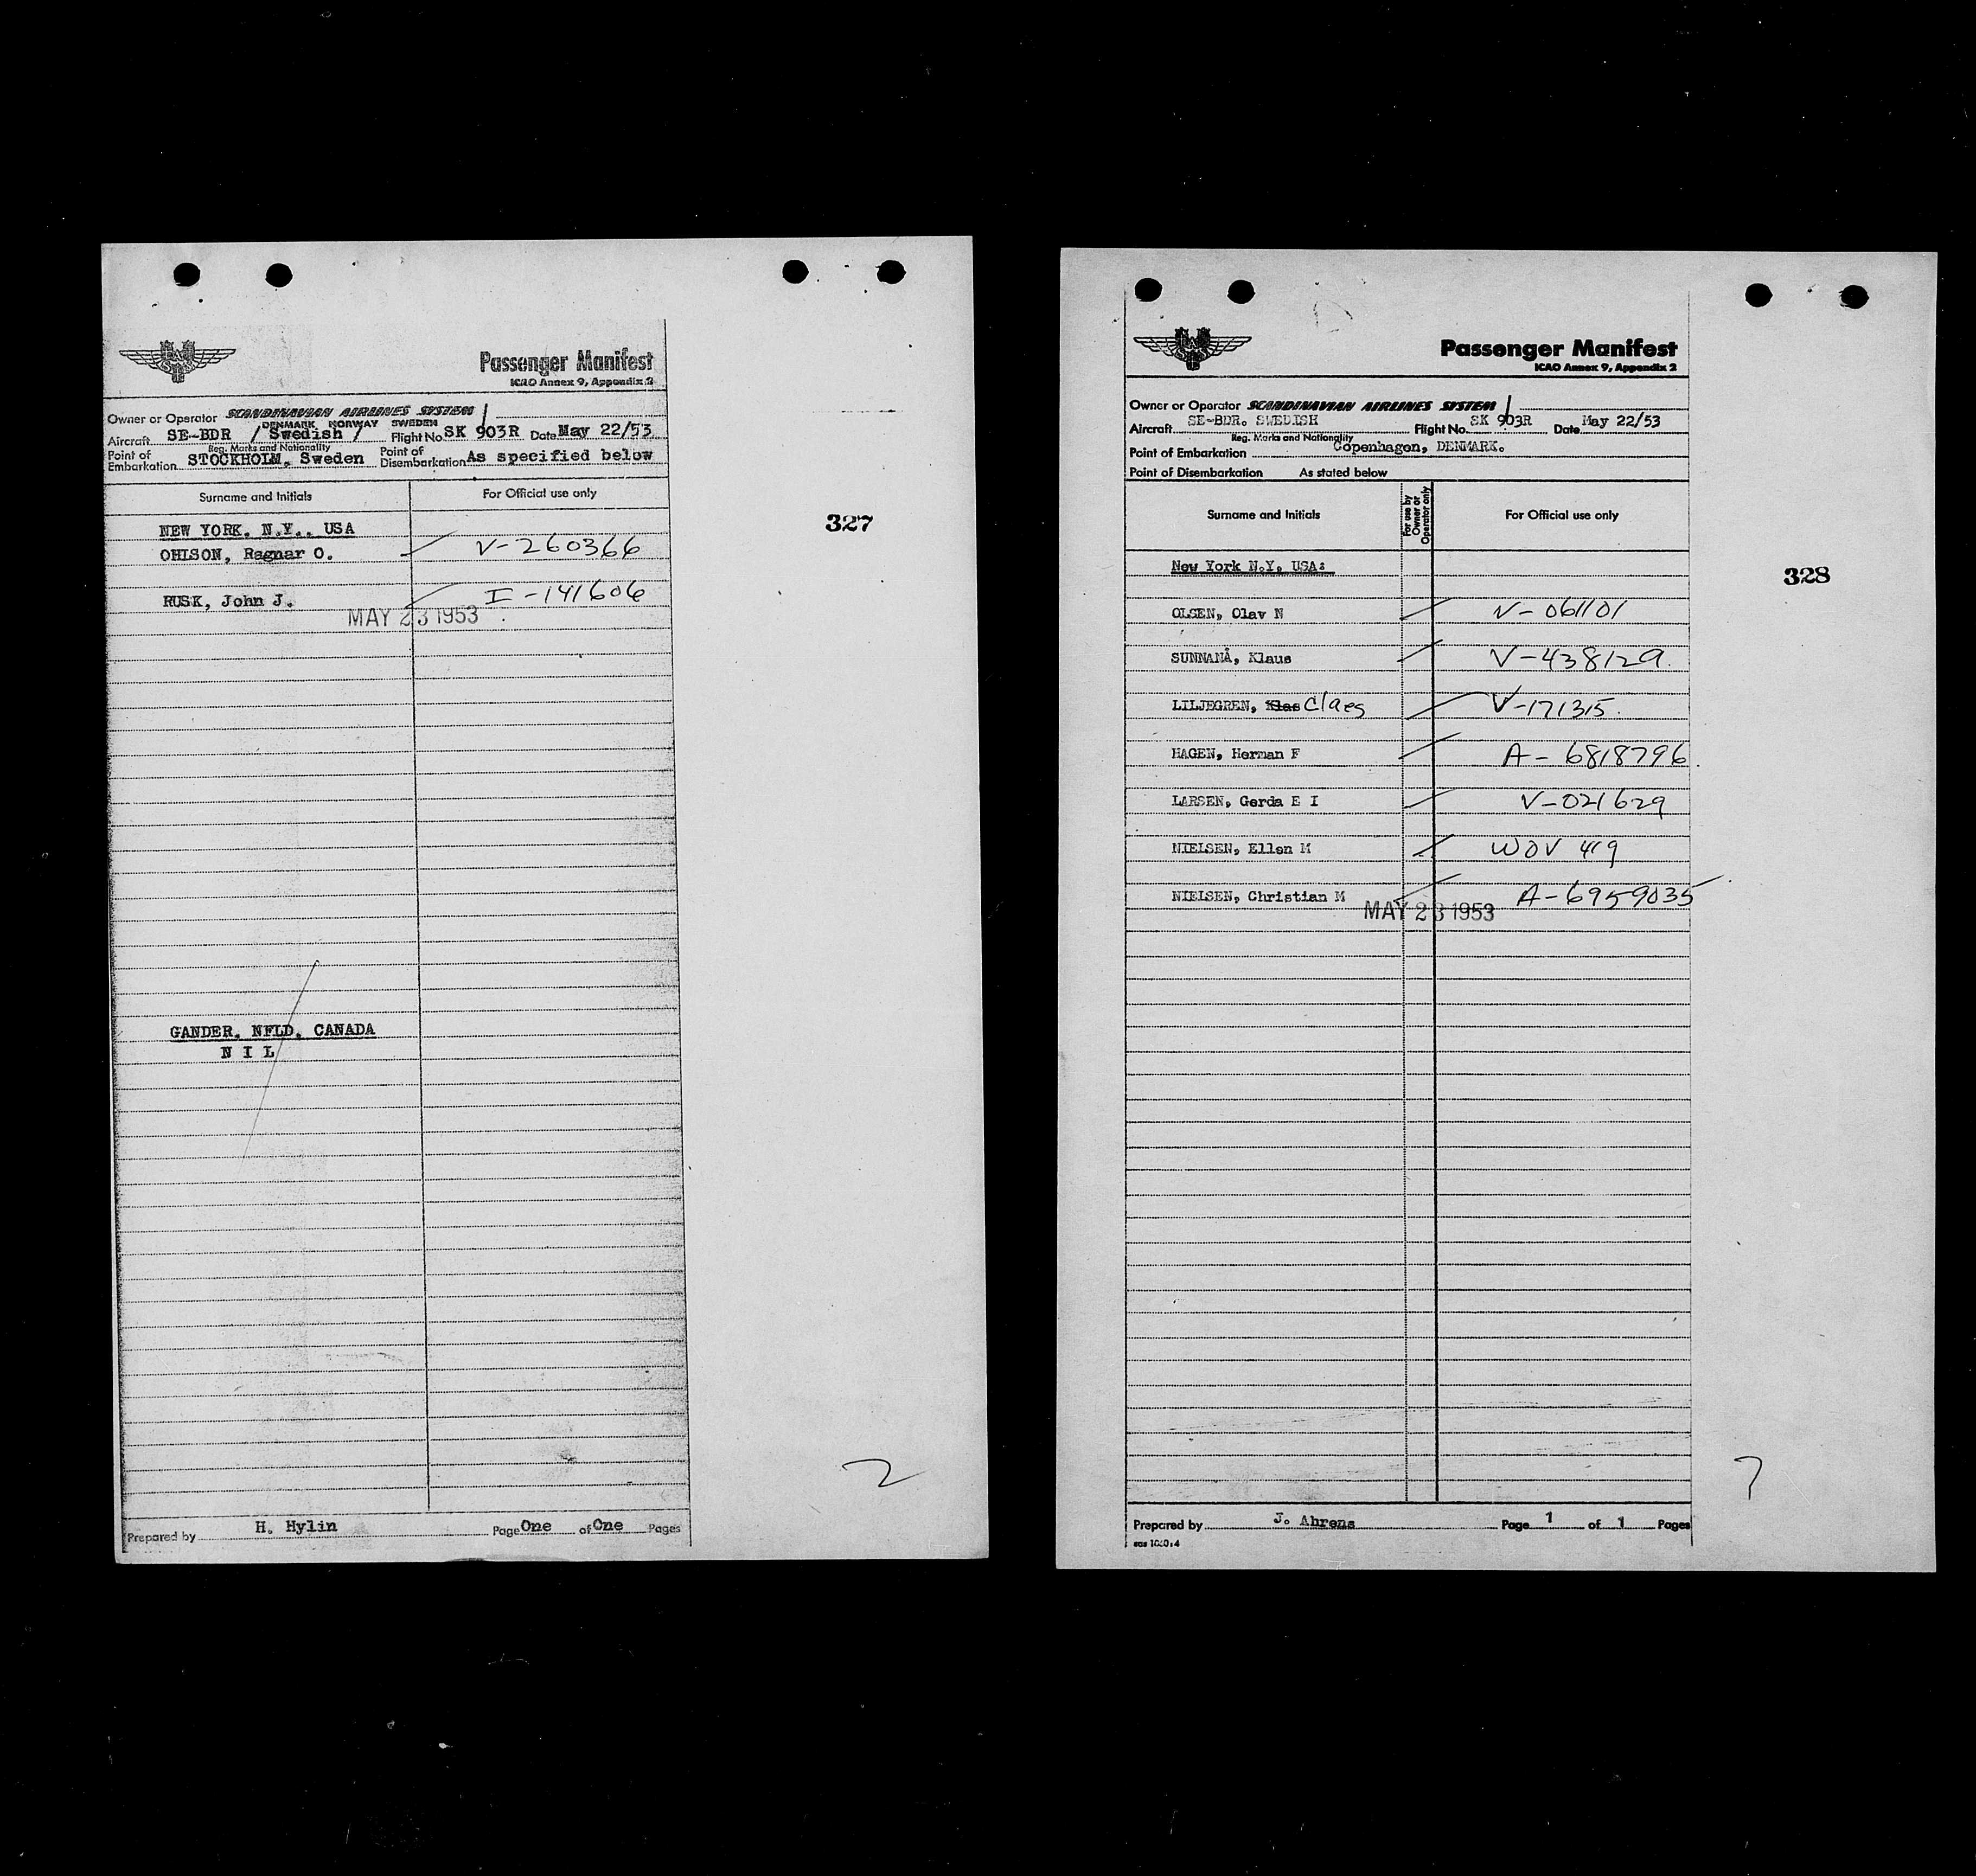 Passenger Manifest
ICAO Annex 9, Appendix 2
Owner or Operator SCANDINAVIAN AIRLINES SYSTEM
DENMARK NORWAY SWEDEN
Aircraft SE-BDR / Swedish / Flight No. SK 903R Date May 22/53
Reg. Marks and Nationality
Point of Embarkation STOCKHOLM, Sweden Point of Disembarkation As specified below
Surname and Initials For Official use only
NEW YORK, N.Y., USA
327
OHLSON, Ragnar O. V-260366
RUSK, John J. I-141606
MAY 23 1953
GANDER, NFLD, CANADA
N I L
2
Prepared by H. Hylin Page One of One Pages
Passenger Manifest
ICAO Annex 9, Appendix 2
Owner or Operator SCANDINAVIAN AIRLINES SYSTEM
Aircraft SE-BDR. SWEDISH Flight No. SK 903R Date May 22/53
Reg. Marks and Nationality
Point of Embarkation Copenhagen, DENMARK.
Point of Disembarkation As stated below
Surname and Initials For use by Owner or Operator only For Official use only
New York N.Y. USA:
328
OLSEN, Olav N V-061101
SUNNANÅ, Klaus V-438129.
LILJEGREN, Klas Claes V-171315.
HAGEN, Herman F A-6818796
LARSEN, Gerda E I V-021629
NIELSEN, Ellen M WOV 419
NIELSEN, Christian M A-6959035
MAY 23 1953
7
Prepared by J. Ahrens Page 1 of 1 Pages